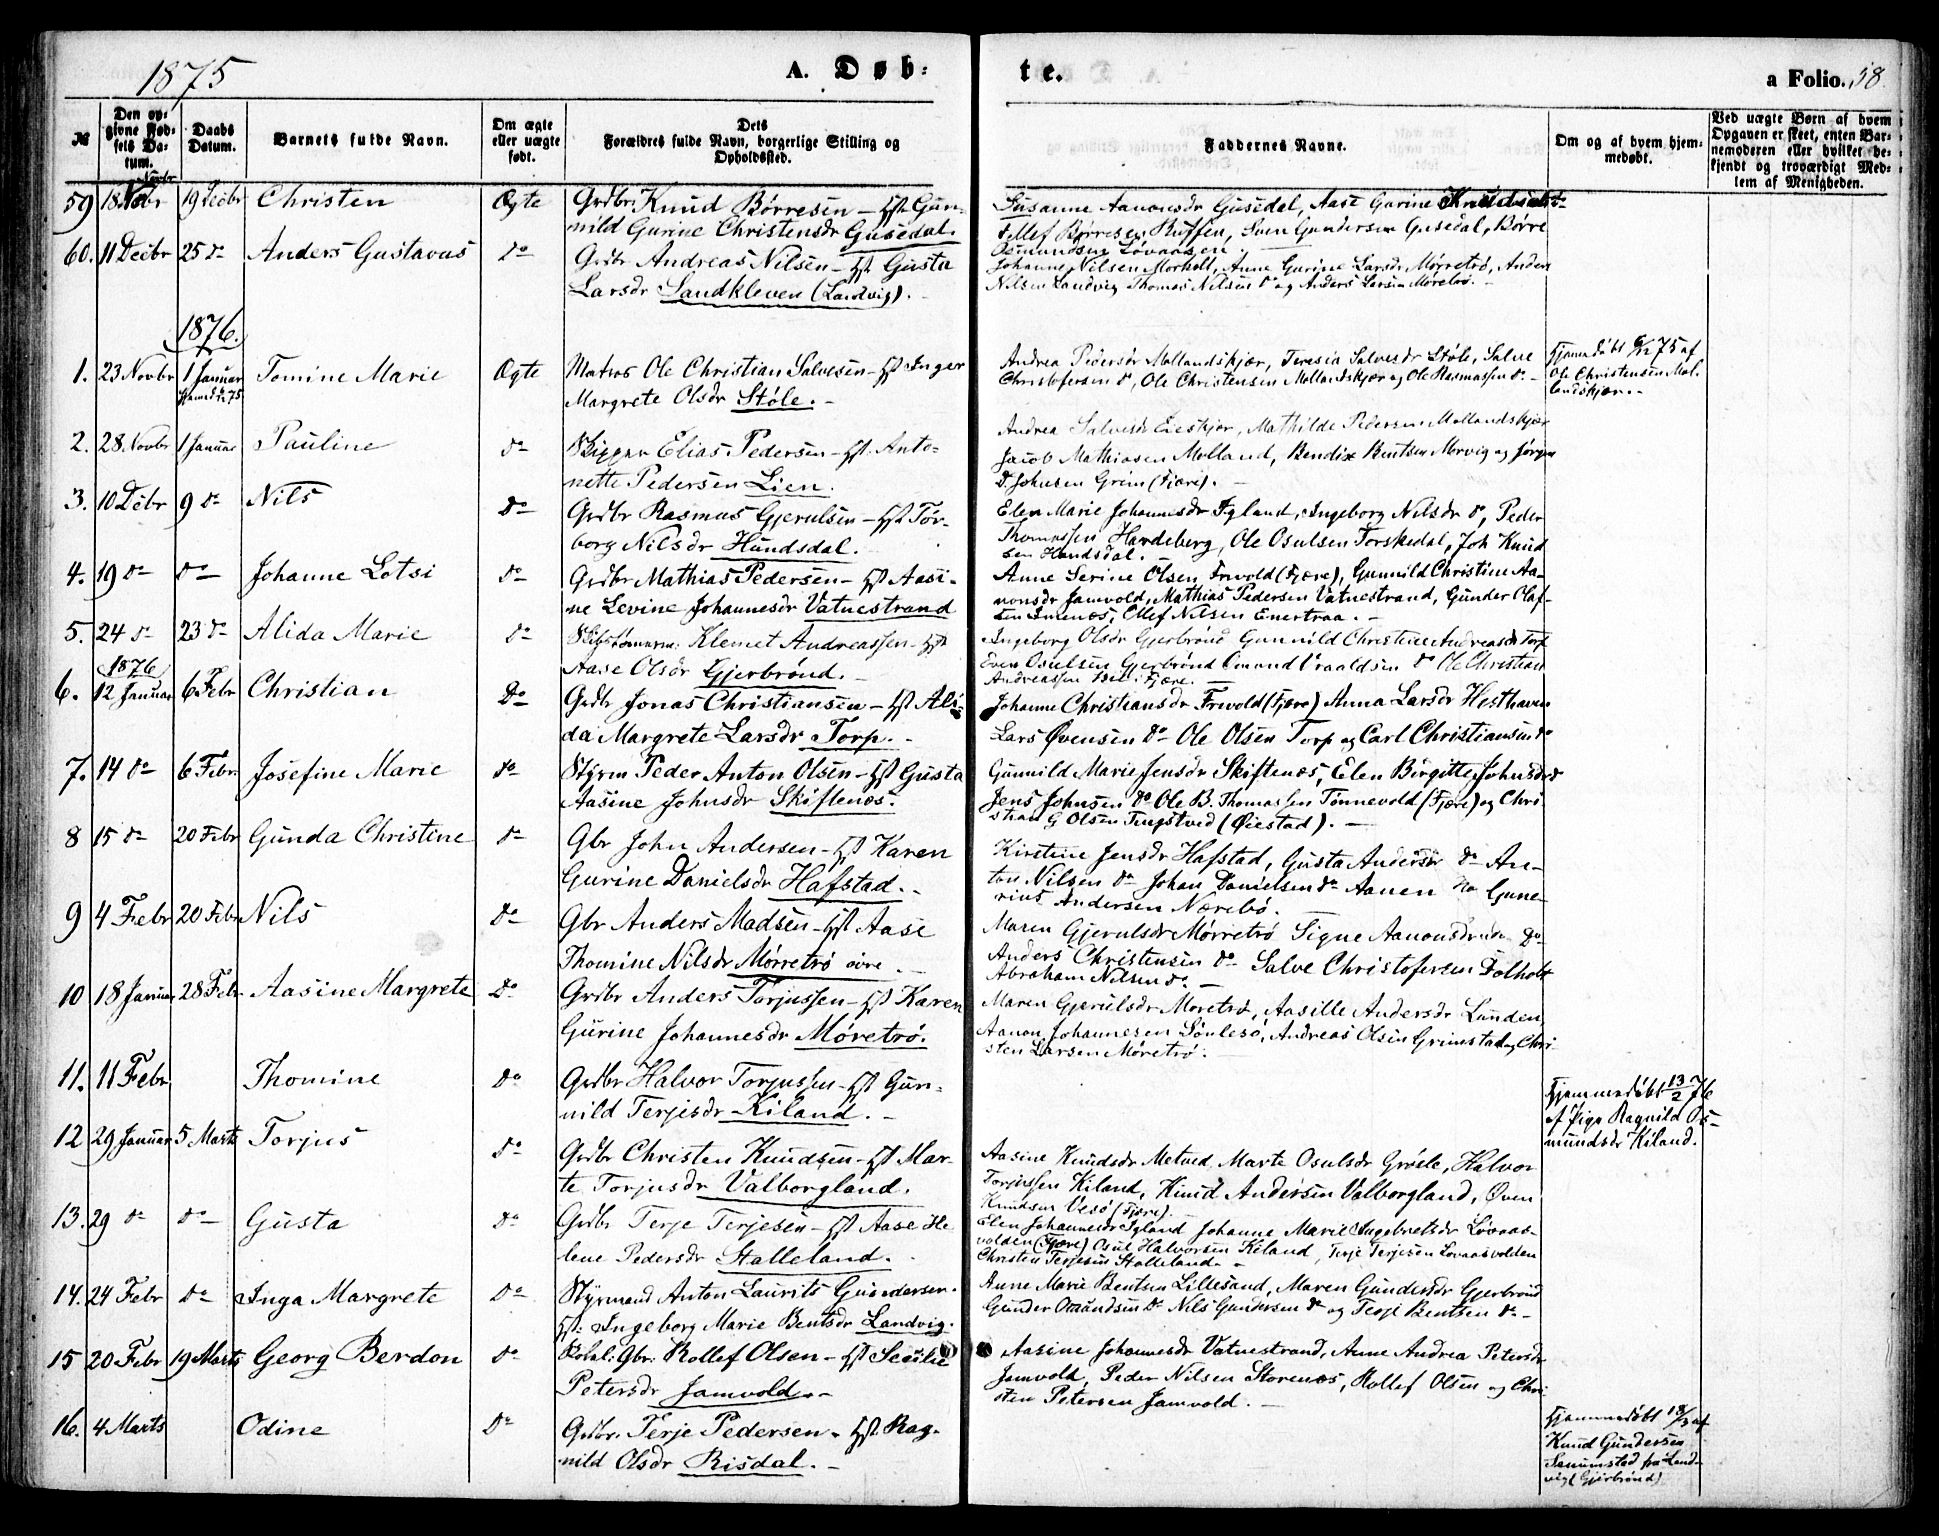 1875
A. Døb:
te.
a Folio. 58
№
Den op-
givne Fød-
sels Da-
tum.
Daabs
Datum.
Barnets fulde Navn.
Om ægte
eller uægte
født.
Dets
Forældres fulde Navn, borgerlige Stilling og
Opholdssted.
Faddernes Navne.
Om og af hvem hjem-
medøbt.
Ved uægte Børn af hvem
Opgaven er skeet, enten Bar-
nemoderen eller hvilket be-
kjendt og troværdigt Med-
lem af Menigheden.
59 18 Novbr 19 Decbr Christen Ægte Grdbr. Knud Børresen – Hst. Gun-
nild Gurine Christensdr Gusedal.
Susanne Aanonsdr Gusedal, Aase Gurine
Tellef Børresen, Sven Gundersen Gusedal, Børre
Osmundsen Løvaasen
60. 11 Decbr 25 do Anders Gustavus do Grdbr Andreas Nilsen – Hst. Gusta
Larsdr Sandkleven (Landvig).
Johanne Nilsen Morholt, Anne Gurine Larsdr Mørretrø, Anders
Nilsen Landvig Thomas Nilsen do og Anders Larsen Møretrø.
1876.
1. 23 Novbr 1 Januar Tomine Marie Ægte Matros Ole Christian Salvesen – Hst Inger
Margrete Olsdr Støle.
Andrea Pedersdr Mollandskjær, Teresia Salvesdr Støle, Salve
Christofersen do, Ole Christensen Mollandskjær og Ole Rasmussen do
Hjemmedøbt 6/12 75 af
Ole Christensen Mol-
landskjær.
2. 28 Novbr 1 Januar Pauline do Skipper Elias Pedersen – Hst. Anto-
nette Pedersen Lien.
Andrea Salvesdr Eieskjær, Mathilde Pedersen Mollandskjær
Jacob Mathiasen Molland, Bendix Bentsen Morvig og Jørgen
D. Johnsen Grim (Fjære).
3. 10 Decbr 9 do Nils do Grdbr Rasmus Gjerulsen – Hst. Tor-
borg Nilsdr Hundsdal.
Elen Marie Johannesdr Igland, Ingeborg Nilsdr do, Peder
Thomassen Hardeberg, Ole Osulsen Torskedal, Joh Knud
sen Hundsdal.
4. 19 do do Johanne Lotsi do Grdbr Mathias Pedersen – Hst Aasi-
ne Levine Johannesdr Vatnestrand
Anne Serine Olsen, Frivold (Fjære), Gunnild Christine Aa-
nonsdr Jamvold, Mathias Pedersen Vatnestrand, Gunder Olaf-
sen, Ollef Nilsen
5. 24 do 23 do Alida Marie do Klemet Andreassen – Hst
Aase Olsdr Gjerbrønd.
Ingeborg Olsdr Gjerbrønd Gunnild Christine Andreasdr Torp
Even Osulsen Gjerbrønd Omund Vraaldsen do Ole Christian
Andreassen Fjære.
1876
6. 12 Januar 6 Febr Christian Do Grdbr Jonas Christiansen – Hst Ali-
da Margrete Larsdr Torp.
Johanne Christiansdr Frivold (Fjære) Anna Larsdr Hesthaven
Lars Øvensen do Ole Olsen Torp og Carl Christiansen do
7. 14 do 6 Febr. Josefine Marie do Styrm Peder Anton Olsen – Hst Gusta
Aasine Johnsdr Skiftenæs.
Gunnild Marie Jensdr Skiftenæs, Elen Birgitte Johnsdr do
Jens Johnsen do Ole B. Thomassen Tønnevold (Fjære) og Chri
stian G Olsen Tingstved (Øiestad).
8 15 do 20 Febr Gunda Christine do Gbr John Andersen – Hst Karen
Gurine Danielsdr Hafstad.
Kirstine Jensdr Hafstad, Gusta Andersdr do An-
ton Nilsen do Johan Danielsen do Aanen do Gune-
rius Andersen Nærebø.
9 4 Febr 20 Febr Nils Do Gbr Anders Madsen – Hst Aase
Thomine Nilsdr Mørretrø øvre
Maren Gjerulsdr Mørretrø Signe Aanonsdr do
Anders Christensen do Salve Christofersen Folholt
Abraham Nilsen do.
10 18 Januar 28 Febr. Aasine Margrete Do Grdbr Anders Torjussen – Hst Karen
Gurine Johannesdr Møretrø.
Maren Gjerulsdr Moretrø, Aasille Andersdr Lunden,
Aanon Johannesen Sønlesø, Andreas Olsen Grimstad og Chri-
sten Larsen Møretrø.
11. 11 Febr Thomine Do Grdbr Halvor Torjussen – Hst Gun-
nild Terjesdr Kiland.
Hjemmedøbt 13/2 76
af Pige Ragnild Os-
mundsdr Kiland.
12 29 Januar 5 Marts Torjus do Grdbr Christen Knudsen – Hst Mar-
te Torjusdr Valborgland.
Aasine Knudsdr Metved, Marte Osulsdr Grøsle, Halvor
Torjussen Kiland, Knud Andersen Valborgland, Oven
Knudsen Vesø (Fjære).
13. 29 do do Gusta Do Grdbr Terje Terjesen – Hst Aase He-
lene Pedersdr Stalleland.
Elen Johannesdr Igland Johanne Marie Ingebretsdr Løvaas-
volden (Fjære) Osul Halvorsen Kiland, Terje Terjesen Løvaasvolden
Christen Terjesen Stalleland.
14. 24 Febr do Inga Margrete Do Styrmand Anton Laurits Gundersen.
Hst: Ingeborg Marie Bentsdr Landvig.
Anne Marie Bentsen Lillesand, Maren Gundersdr Gjerbrønd
Gunder Omundsen do Nils Gundersen do og Terje Bentsen do
15 20 Febr 19 Marts Georg Berdon do Gbr: Rollef Olsen – Hst Secilie
Petersdr Jamvold
Aasine Johannesdr Vatnestrand, Anne Andrea Petersdr
Jamvold, Peder Nilsen Storenæs, Rollef Olsen og Chri
sten Petersen Jamvold.
16. 4 Marts Odine Do Grdbr. Terje Pedersen – Hst. Rag-
nild Olsdr Risdal.
Hjemmedøbt 18/3 af
Knud Gundersen
fra Land-
vig (Gjerbrønd)